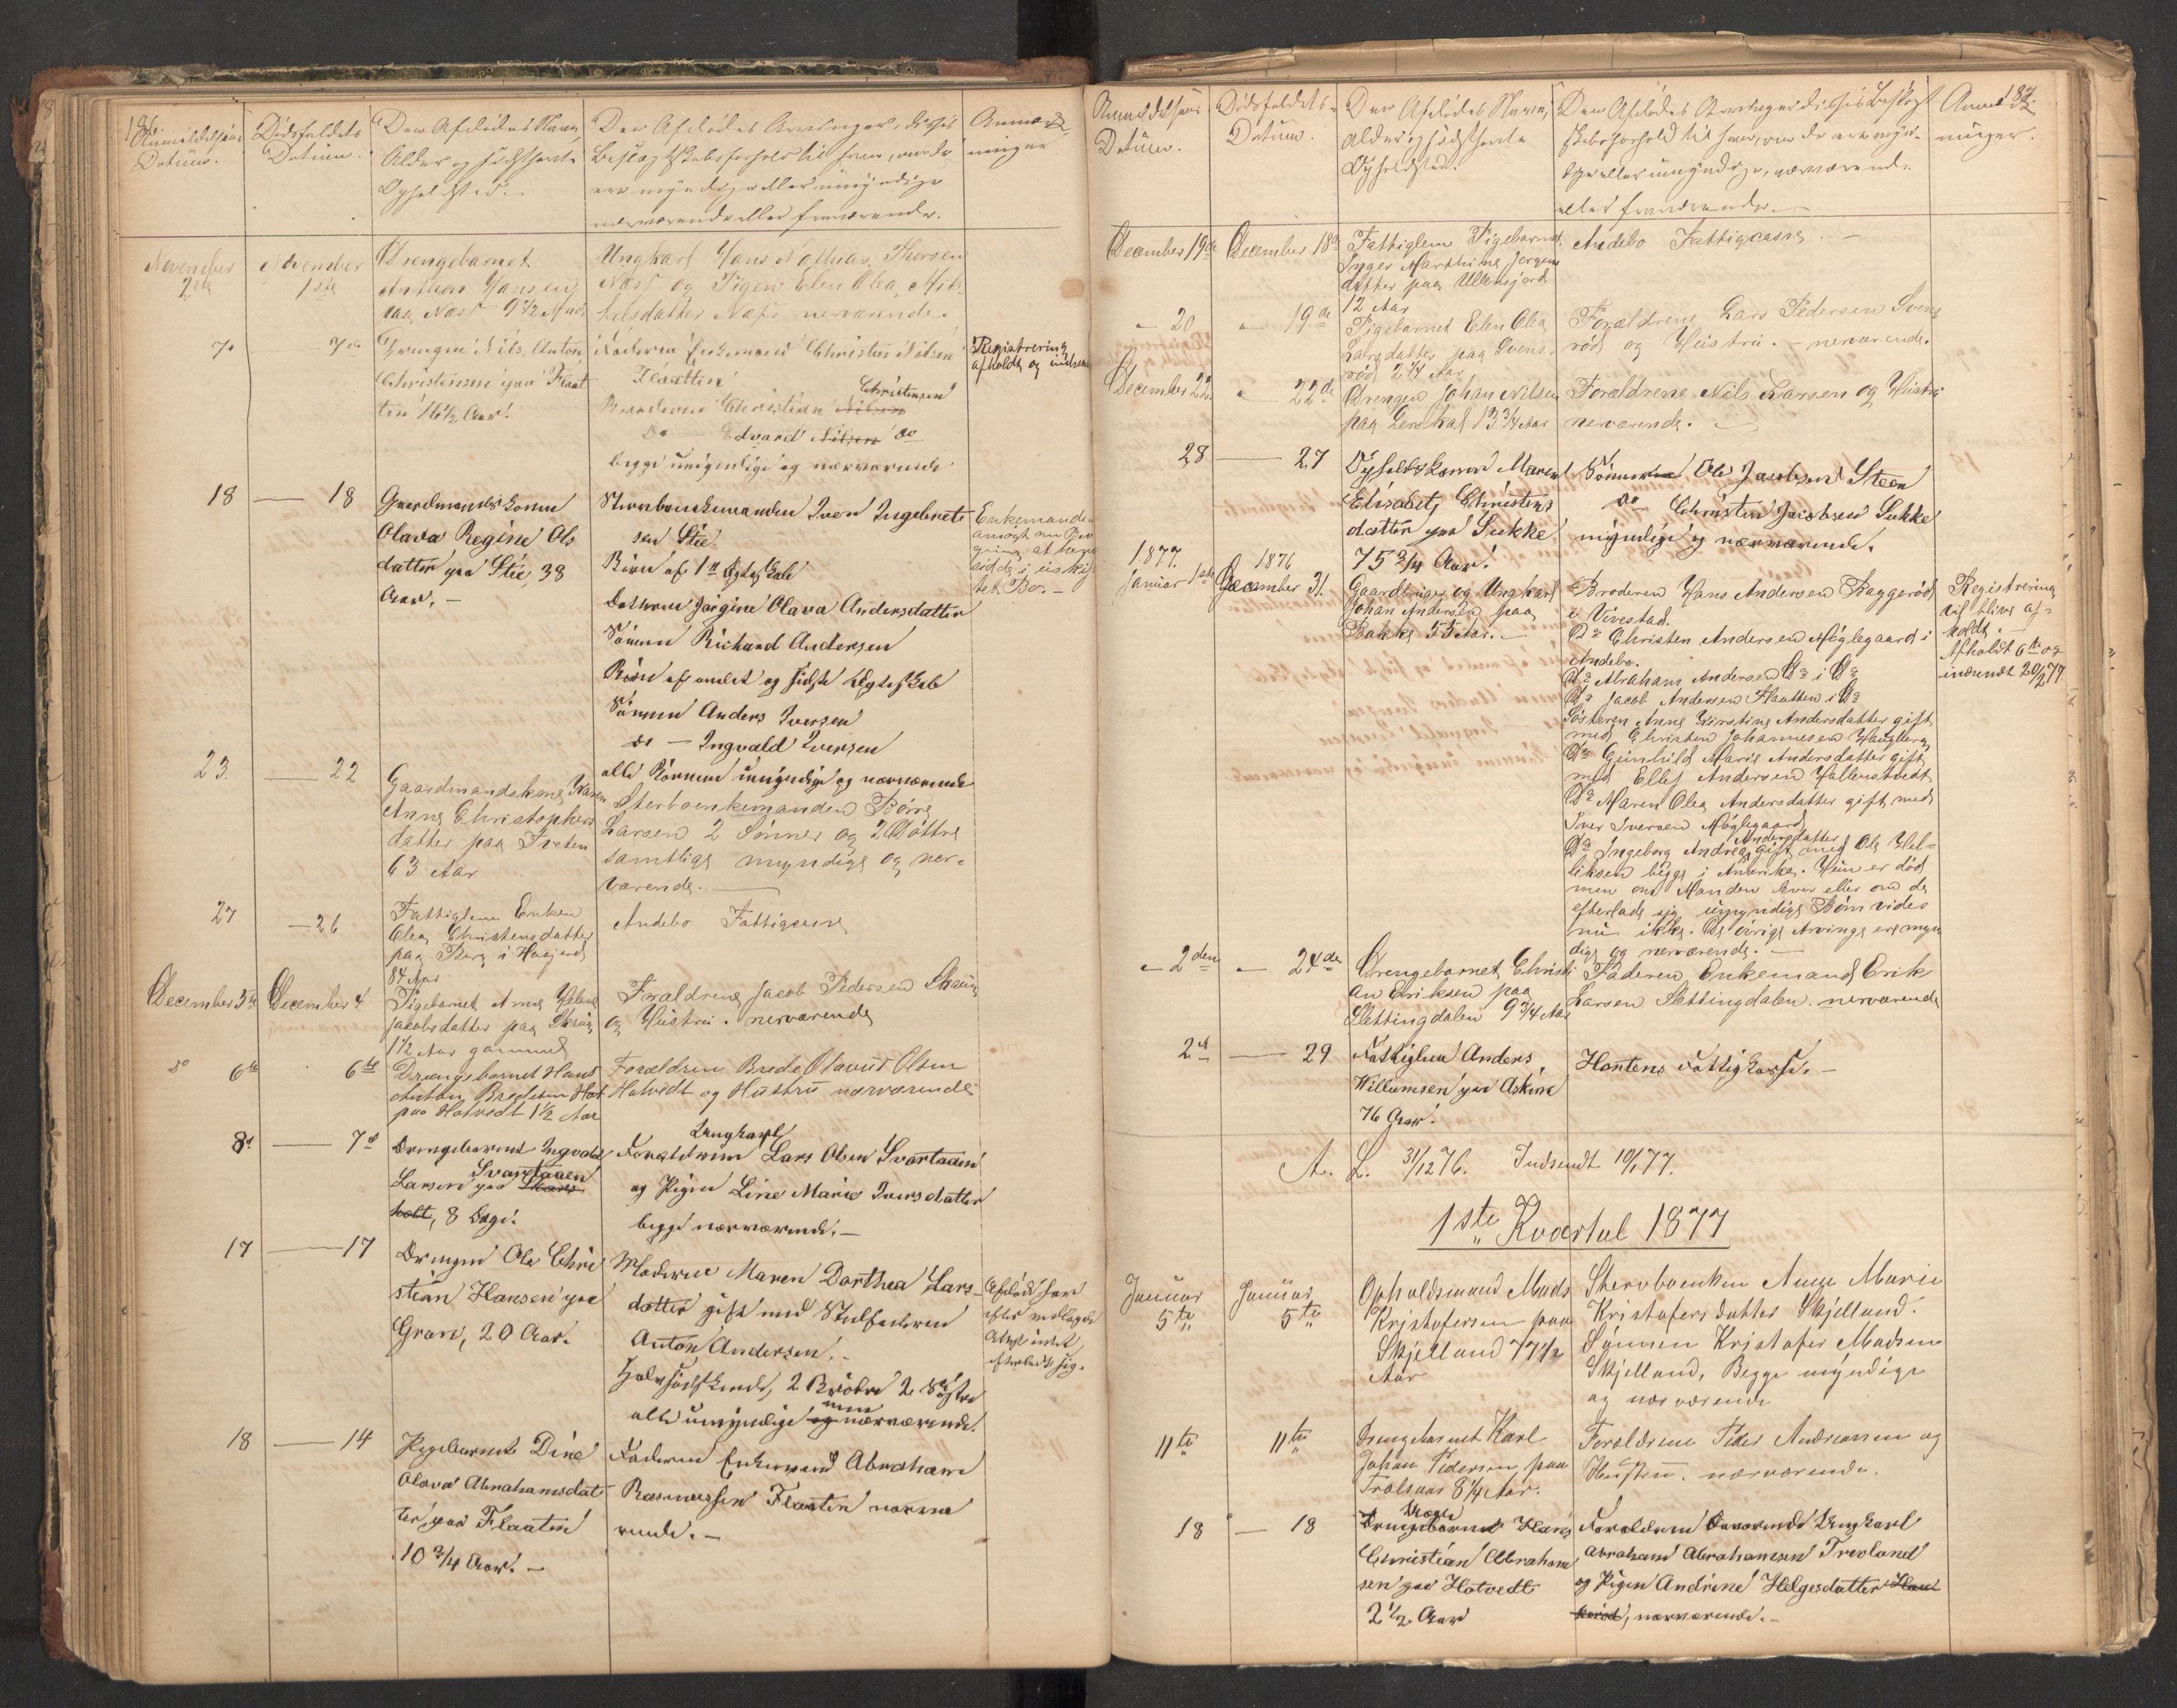 Anmeldelsens
Datum.
Dødsfaldets
Datum.
Den Afdødes Navn,
Alder og sidsthavte
Opholdssted.
Den Afdødes Arvinger, disses
Beslægtskabsforhold til ham, om de
ere myndige eller umyndige
nærværende eller fraværende.
Anmærk-
ninger
November
2de
November
1ste
Drengebarnet
Anthon Hansen
paa Næss 9 1/2 Mnd
Ungkarl Hans Mathias Thorsen
Næss og Pigen Elen Olea Mik-
kelsdatter Næss nerværende.
7de
7de
Drengen Nils Anton
Christensen paa Flaat
ten 16 1/2 Aar.
Faderen Enkemand Christen Nilsen
Flaatten
Christensen
Broderen Christian Nilsen
Do Edvard Nilsen do
begge umyndige og nærværende
Registrering
afholdt og indsendt
18
18
Gaardmandskonen
Olava Regine Ols
datter paa Stie 38
Aar. -
Sterboenkemanden Iver Ingebrets
sen Stie
Børn af 1ste Ægteskab
Datteren Jørgine Olava Andersdatter
Sønnen Richard Andersen
Børn af andet og sidste Ægteskab
Sønnen Anders Iversen
do - Ingvald Iversen
alle Børnene umyndige og nærværende
Enkemanden
ansøgt om Bev
ging at hen
sidde i uskif
tet Bo. -
23.
22
Gaardmandskone Karen
Anne Christophers
datter paa Sveten
63 Aar
Sterboenkemanden Børe
Larsen 2 Sønner og 2 Døttre
samtlige myndige og ner-
værende.
27
26
Fattiglem Enken
Olea Christensdatter
paa Berg i Høijord
84 Aar
Andebo Fattigcasse
December 5te
December 4
Pigebarnet Anne Helene
Jakobsdatter paa Skaug
1 1/2 Aar gammel
Forældrene Jacob Pedersen Skaug
og Hustru. nerværende
do 6te
6te
Drengebarnet Hans
Anton Bredesen Hot
paa Hotvedt 1 1/2 Aar
Forældrene Brede Olavus Olsen
Hotvedt og Hustru nærværende
8de
7de
Drengebarnet Ingvald
Svartaaen
Larsen paa Skars
holt, 8 Dage.
Ungkarl
Forældrene Lars Olsen Svartaaen
og Pigen Line Marie Iversdatter
begge nærværende. -
17
17
Drengen Ole Chri
stian Hansen paa
Gran, 20 Aar.
Moderen Maren Dorthea Lars-
datter gift med Stedfaderen
Anton Andersen. -
Halvsødskende, 2 Brødre 2 Søstre
men
alle umyndige og nærværende.
Afdød har
efter modtagen
Arv intet
efterladt sig.
18
14
Pigebarnet Dine
Olava Abrahamsdat
ter paa Flaaten
10 3/4 Aar. -
Faderen Enkemand Abraham
Rasmussen Flaaten nærvæ
rende. -
Anmeldelsens
Datum.
Dødsfaldets-
Datum.
Den Afdødes Navn,
Alder og sidsthavte
Opholdssted.
Den Afdødes Arvinger disses Beslægt
skabsforhold til ham, om de ere myn-
dige eller umyndige, nærværende
eller fraværende. -
Anmærk-
ninger.
December 19de
December 18de
Fattiglem Pigebarnet
Inger Marthine Jørgens
datter paa Ullensfjord
12 Aar
Andebo Fattigcasse. -
" 20
" 19de
Pigebarnet Elen Olea
Larsdatter paa Svens-
rød 2 1/4 Aar
Forældrene Lars Pedersen Svens
rød og Hustru. - nerværende.
December 22
" 22de
Drengen Johan Nilsen
paa Lerskal 13 3/4 Aar
Forældrene Nils Larsen og Hustru
nerværende.
28
27
Opholdskonen Maren
Elisabeth Christens
datter paa Sukke
75 3/4 Aar.
Sønnen Ole Jacobsen Steen
Do Christen Jacobsen Sukke
myndige og nærværende.
1877.
Januar 1ste
1876
December 31.
Gaardbruger og Ungkarl
Johan Andersen paa
Bakke 55 Aar. -
Broderen Hans Andersen Baggerød
i Vivestad.
Do Christen Andersen Møglegaard i
Andebo.
Do Abraham Andersen Do i Do
Do Jacob Andersen Flaatten i Do
Søsteren Anne Kirstine Andersdatter gift
med Christen Johannesen Haugberg
Do Gunhild Marie Andersdatter gift
med Ellef Andersen Hallenstvedt
Do Maren Olea Andersdatter gift med
Iver Iversen Møglegaard
Andersdatter
Do Ingeborg Andrea gift med Ole Hel-
liksen begge i Amerika. Hun er død
men om Manden lever eller om de
efterlade sig umyndige Børn vides
nu ikke. De øvrige Arvinge ere myn
dige og nerværende. -
Registrering
vil blive af-
holdt. -
Afholdt 6te og
indsendt 20/2 77
" 2den
" 24de
Drengebarnet Christi
an Eriksen paa
Slettingdalen 9 3/4 Aar
Faderen Enkemand Erik
Larsen Slettingdalen. nerværende
2de
29
Fattiglem Anders
Willumsen paa Askim
76 Aar.
Hontens Fattigkasse. -
A. L. 31/12 76. Indsendt 10/1 77.
1ste Kvartal 1877
Januar
5te
Januar
5te
Opholdsmand Mads
Kristofersen paa
Skjelland 77 1/2
Aar
Stervboenken Anne Marie
Kristofersdatter Skjelland.
Sønnen Kristofer Madsen
Skjelland, Begge myndige
og nærværende
11te
11te
Drengebarnet Karl
Johan Pedersen paa
Trolsaas 8 1/4 Aar.
Forældrene Peder Andreassen og
Hustru. nærværende.
18
18
Uægte
Drengebarnet Hans
Christian Abraham
sen paa Hotvedt
2 1/2 Aar
Forældrene Ungkarl
Abraham Abrahamsen Trevland
og Pigen Andrine Helgesdatter
nærværende. -